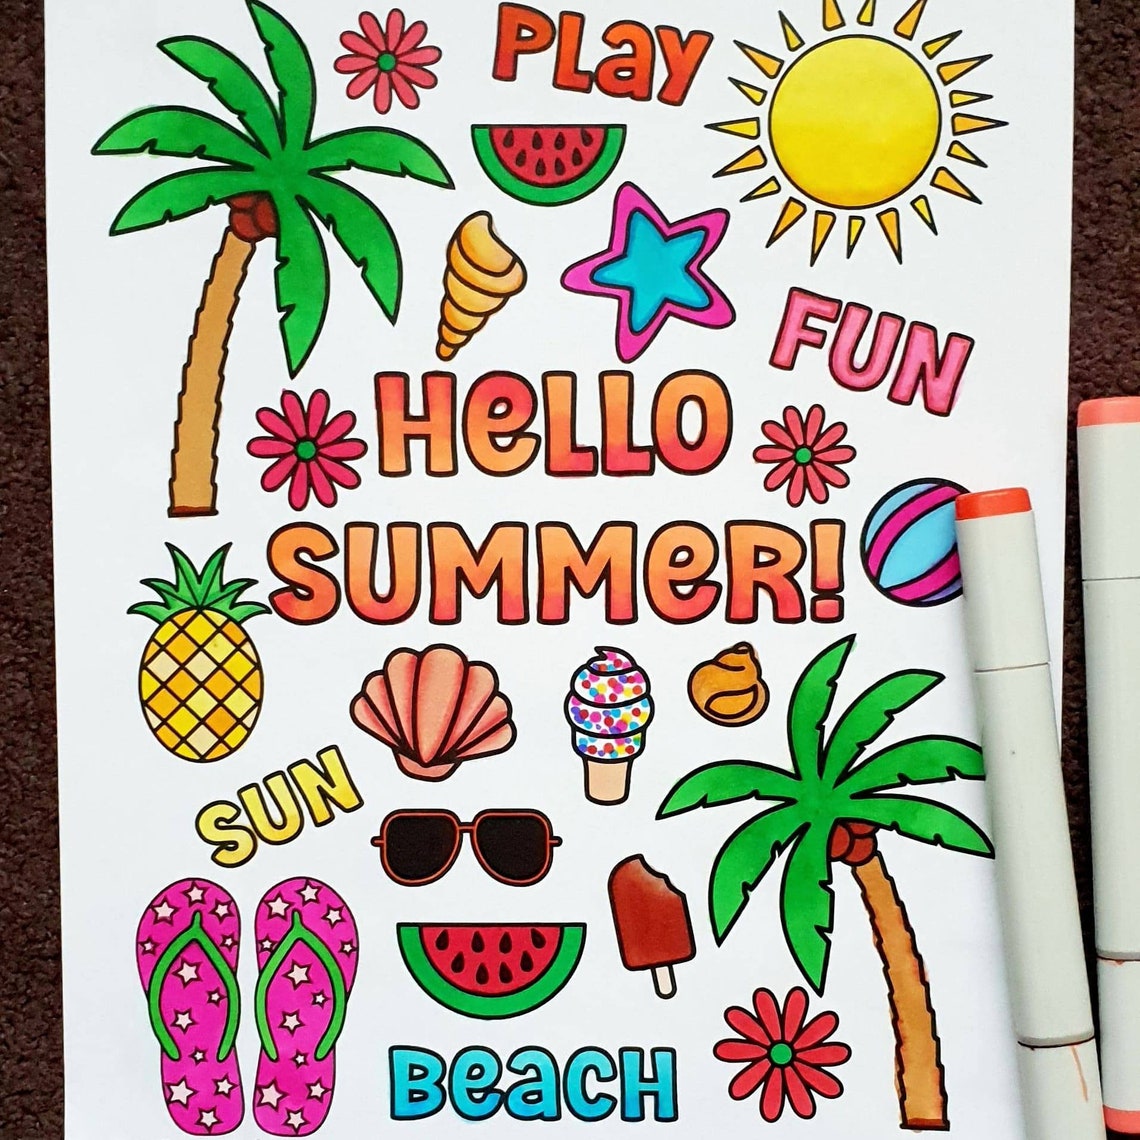 PLay
FUN
HeLLO
SUMMeR!
SUN
BeacH